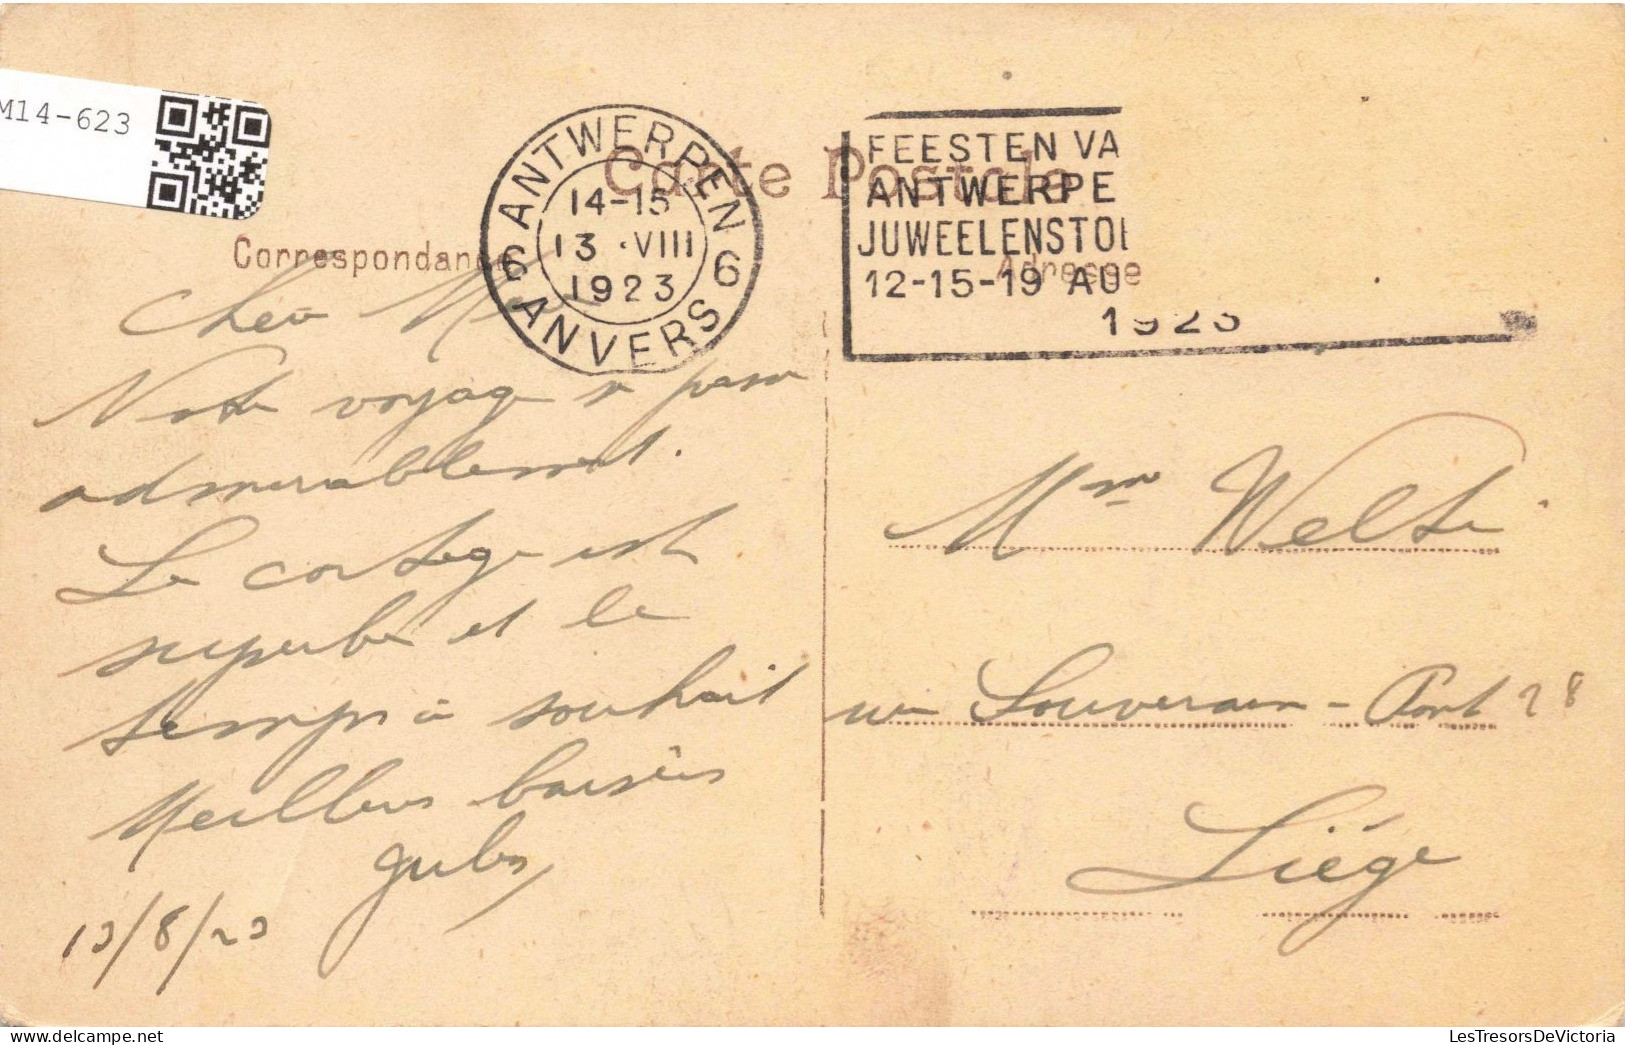 M14-623
Carte Postale
Correspondance
Adresse
ANTWERPEN
14-15
13 ·VIII
1923
6 6
ANVERS
FEESTEN VA
ANTWERPE
JUWEELENSTOE
12-15-19 AU
1923
Notre voyage se passa
admirablement.
Le cortege est
superbe et le
temps à souhait
Meilleurs baisers
Jules
13/8/23
Mme Welte
rue Souverain-Pont 28
Liége
LesTresorsDeVictoria